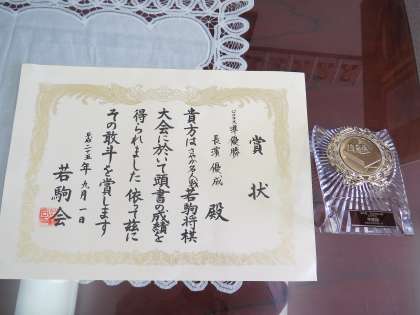 賞状
準優勝
長濱優成 殿
貴方はさやか名人戦若駒将棋
大会に於いて頭書の成績を
得られました 依って茲に
その敢斗を賞します
二十五年九月一日
若駒会